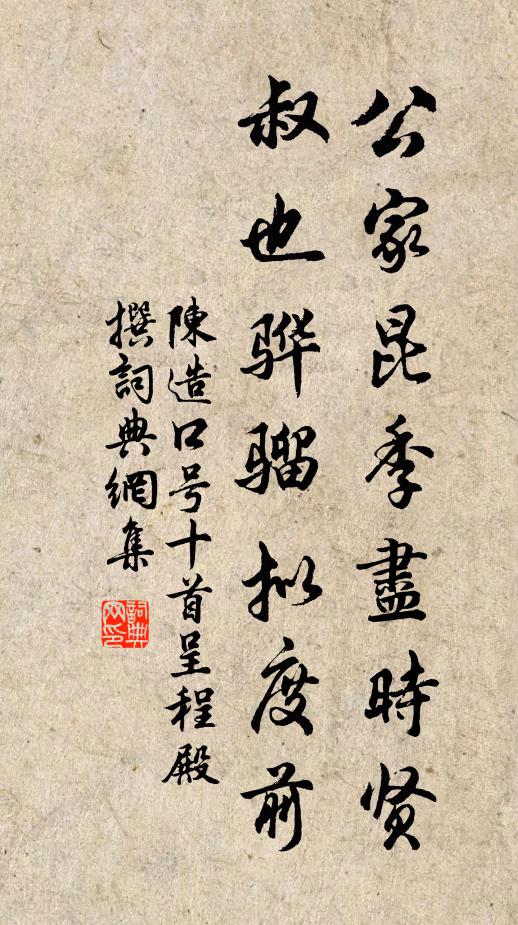 公家昆季盡時贤
叔也骅骝拟度前
陳造口号十首呈程殿
撰詞典網集
詞典网印